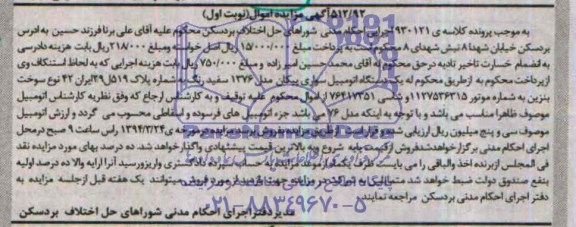 ۵۱۲/۹۳آگهی مزایده اموال(نوبت اول)
به موجب پرونده کلاسه ی ۹۳۰۱۲۱ اجرای احکام مدنی شوراهای حل اختلاف بردسکن محکوم علیه آقای علی برنا فرزند حسین به ادرس
بردسکن خیابان شهدا ۸ نبش شهدای ۸ محکوم است به پرداخت مبلغ ۱۵/۰۰۰/۰۰۰ ریال اصل خواسته ومبلغ ۲۱۸/۰۰۰ ریال بابت هزینه دادرسی
به انضمام خسارت تاخیر تادیه درحق محکوم له آقای محمد حسین امیر زاده و مبلغ ۷۵۰/۰۰۰ ریال بابت هزینه اجرایی که به لحاظ استنکاف وی
از پرداخت محکوم به ازطریق محکوم له یک دستگاه اتومبیل سواری پیکان مدل ۱۳۷۶ سفید رنگ به شماره پلاک ۵۱۹ل۲۹ایران ۴۲ نوع سوخت
بنزین به شماره موتور ۱۱۲۷۵۳۶۲۱۵ و شاسی ۷۶۴۱۷۳۵۱ از اموال محکوم علیه توقیف و به کارشناس ارجاع که وفق نظریه کارشناس اتومبیل
موصوف ظاهرا مناسب می باشد و با توجه به اینکه مدل ۷۶ می باشد جزء اتومبیل های فرسوده و اسقاطی محسوب می گردد و ارزش اتومبیل
موصوف سی و پنج میلیون ریال ارزیابی شده و قرار است از طریق مزایده بفروش برسد مزایده درتاریخ ۱۳۹۴/۳/۲۴ راس ساعت ۹ صبح درمحل
اجرای احکام مدنی برگزار خواهدشدفروش ازقیمت پایه شروع وبه بالاترین قیمت پیشنهادی واگذارخواهد شد. ده درصد بهای مورد مزایده نقد
فی المجلس ازبرنده اخذ والباقی را می بایست ظرف یکماه ازموعد مزایده به حساب سپرده دادگستری واریزورسید آنرا ارایه والا ده درصد اولیه
بنفع صندوق دولت ضبط خواهد شد متقاضیان شرکت در مزایده جهت بازدید از مورد فروش میتوانند یک هفته قبل ازجلسه مزایده به
دفتر اجرای احکام مدنی بردسکن مراجعه نمایند.
مدیردفتراجرای احکام مدنی شوراهای حل اختلاف بردسکن
پایگاه اطلاع رسانی مناقصه و مزایده
۰۲۱-۸۸۳۴۹۶۷۰-۵